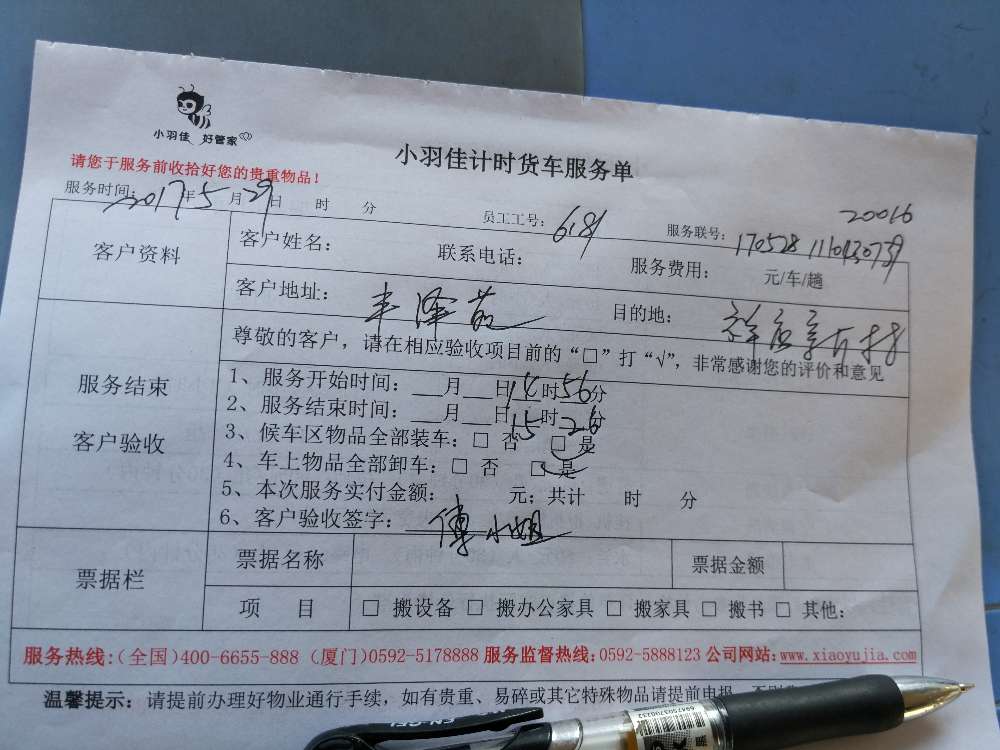 小羽佳 好管家
小羽佳计时货车服务单
请您于服务前收拾好您的贵重物品！
20016
服务时间：2017年5月29日 时 分 员工工号：6181 服务联号：170528
客户资料 客户姓名： 联系电话： 服务费用： 元/车/趟
客户地址：丰泽苑 目的地：
尊敬的客户，请在相应验收项目前的“□”打“√”，非常感谢您的评价和意见
服务结束
客户验收
1、服务开始时间：___月___日14时56分
2、服务结束时间：___月___日15时26分
3、候车区物品全部装车：□ 否 □ 是
4、车上物品全部卸车：□ 否 □ 是
5、本次服务实付金额： 元；共计 时 分
6、客户验收签字：傅小姐
票据栏 票据名称 票据金额
项 目 □ 搬设备 □ 搬办公家具 □ 搬家具 □ 搬书 □ 其他：
服务热线：（全国）400-6655-888（厦门）0592-5178888 服务监督热线：0592-5888123 公司网站：www.xiaoyujia.com
温馨提示：请提前办理好物业通行手续，如有贵重、易碎或其它特殊物品请提前申报
6947503700232